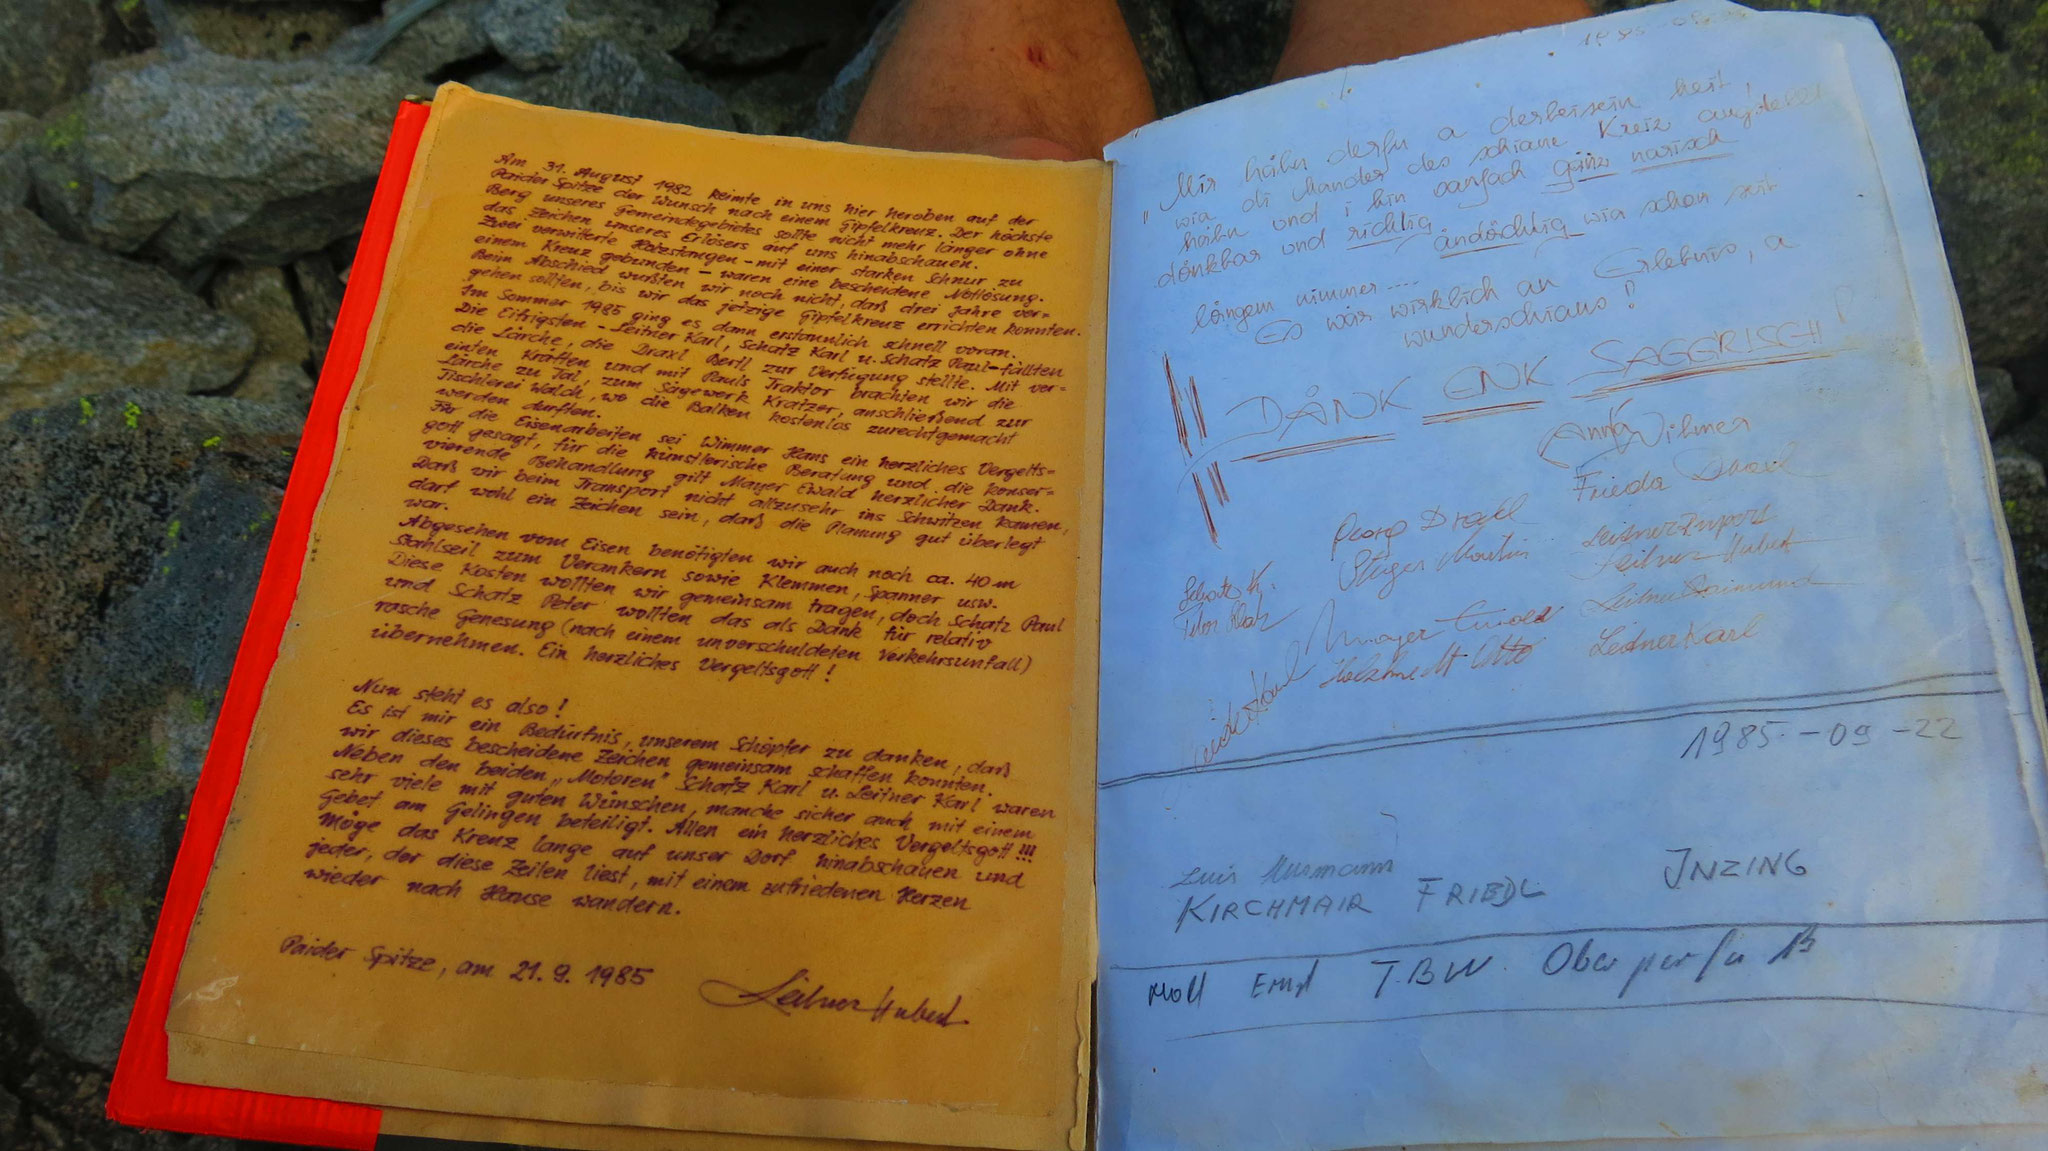 Am 31. August 1982 keimte in uns hier heroben auf der
Paider Spitze der Wunsch nach einem Gipfelkreuz. Der höchste
Berg unseres Gemeindegebietes sollte nicht mehr länger ohne
das Zeichen unseres Erlösers auf uns hinabschauen.
Zwei verwitterte Holzstangen - mit einer starken Schnur zu
einem Kreuz gebunden - waren eine bescheidene Notlösung.
Beim Abschied wußten wir noch nicht, daß drei Jahre ver=
gehen sollten, bis wir das jetzige Gipfelkreuz errichten konnten.
Im Sommer 1985 ging es dann erstaunlich schnell voran.
Die Eifrigsten - Leitner Karl, Schatz Karl u. Schatz Paul - fällten
die Lärche, die Draxl Bertl zur Verfügung stellte. Mit ver=
einten Kräften und mit Pauls Traktor brachten wir die
Lärche zu Tal, zum Sägewerk Kratzer, anschließend zur
Tischlerei Walch, wo die Balken kostenlos zurechtgemacht
werden durften.
Für die Eisenarbeiten sei Wimmer Hans ein herzliches Vergelts=
gott gesagt, für die künstlerische Beratung und die konser=
vierende Behandlung gilt Mayer Ewald herzlicher Dank.
Daß wir beim Transport nicht allzusehr ins Schwitzen kamen,
darf wohl ein Zeichen sein, daß die Planung gut überlegt
war.
Abgesehen vom Eisen benötigten wir auch noch ca. 40 m
Stahlseil zum Verankern sowie Klemmen, Spanner usw.
Diese Kosten wollten wir gemeinsam tragen, doch Schatz Paul
und Schatz Peter wollten das als Dank für relativ
rasche Genesung (nach einem unverschuldeten Verkehrsunfall)
übernehmen. Ein herzliches Vergeltsgott!
Nun steht es also!
Es ist mir ein Bedürfnis, unserem Schöpfer zu danken, daß
wir dieses bescheidene Zeichen gemeinsam schaffen konnten.
Neben den beiden „Motoren" Schatz Karl u. Leitner Karl waren
sehr viele mit guten Wünschen, manche sicher auch mit einem
Gebet am Gelingen beteiligt. Allen ein herzliches Vergeltsgott!!!
Möge das Kreuz lange auf unser Dorf hinabschauen und
jeder, der diese Zeilen liest, mit einem zufriedenen Herzen
wieder nach Hause wandern.
Paider Spitze, am 21.9.1985 Leitner Hubert
"Mir håbn derfn a derbeisein heit,
wia di Mander des schiane Kreiz augstellt
håbn und i bin oanfach gånz narisch
dånkbar und richtig åndächtig wia schon seit
långem nimmer....
Es wår wirklich an Erlebnis, a
wunderschians!
DÅNK ENK SAGGRISCH!
Anna
Frieda Draxl
Georg Draxl
Leitner
Leitner Hubert
Leitner Raimund
Mayer Ewald
Holzknecht Otto
Leitner Karl
1985-09-22
Luis
KIRCHMAIR FRIEDL INZING
Ernst T.B.W. Oberperfuss